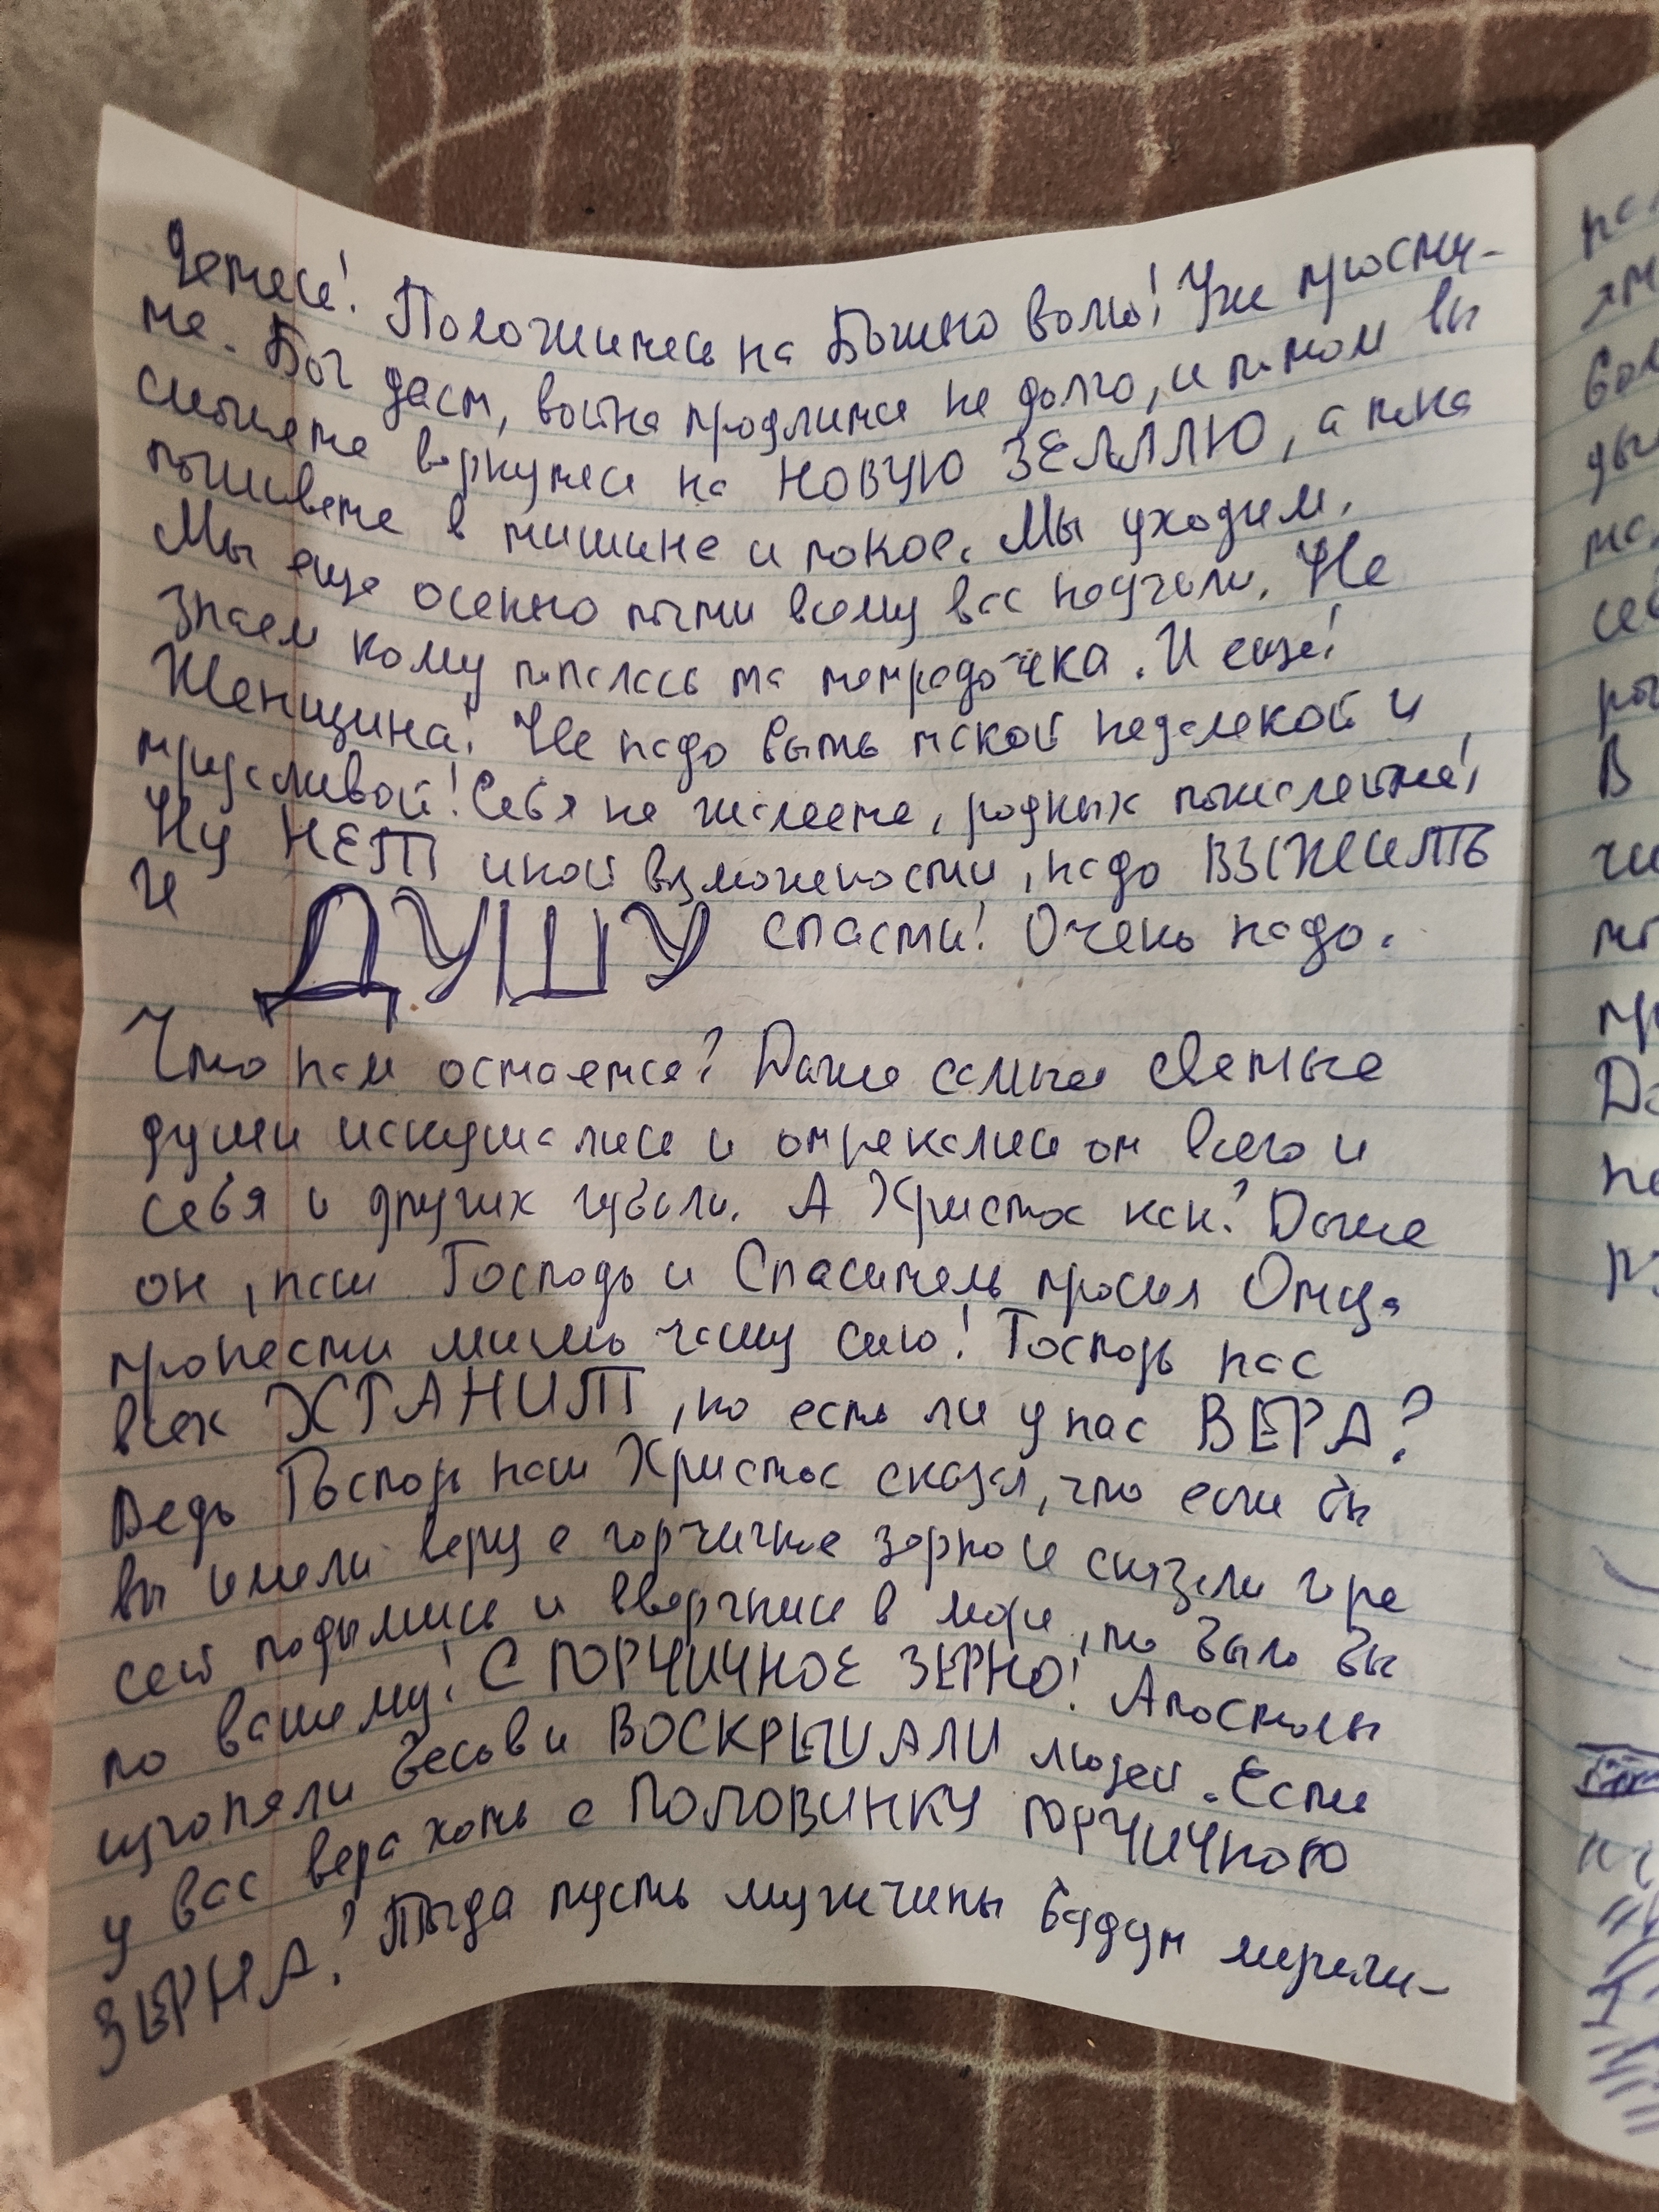 Положитесь на Божью волю! Уж прости-
те. Бог даст, война продлится не долго, и потом вы
сможете вернутся на НОВУЮ ЗЕМЛЮ, а пока
поживете в тишине и покое. Мы уходим.
Мы еще осенью почти всему вас научили. Не
знаем кому попалась та тетрадочка. И еще!
Женщина! Не надо быть такой недалекой и
трусливой! Себя не жалеете, родных пожалейте!
Ну НЕТ иной возможности, надо ВЫЖИТЬ
И ДУШУ спасти! Очень надо.
Что нам остается? Даже самые светлые
души искушались и отрекались от всего и
себя и других губили. А Христос как? Даже
он, наш Господь и Спаситель просил Отца
пронести мимо чашу сию! Господь нас
всех ХРАНИТ, но есть ли у нас ВЕРА?
Ведь Господь наш Христос сказал, что если бы
вы имели веру с горчичное зерно и сказали горе
сей подымись и ввергнись в море, то было бы
по вашему! С ГОРЧИЧНОЕ ЗЕРНО! Апостолы
изгоняли бесов и ВОСКРЕШАЛИ людей. Есть
у вас вера хоть с ПОЛОВИНКУ ГОРЧИЧНОГО
ЗЕРНА? Тогда пусть мужчины будут